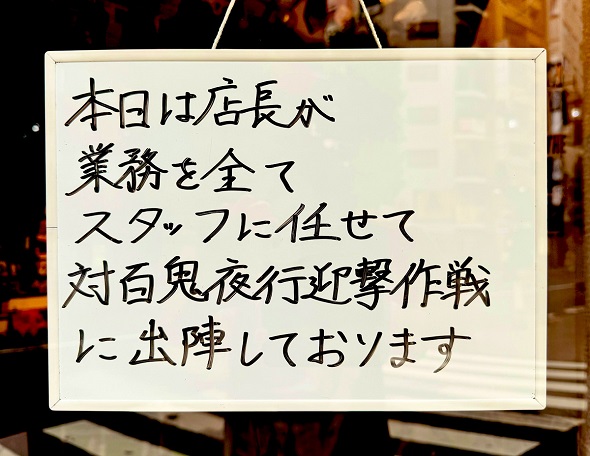 本日は店長が
業務を全て
スタッフに任せて
対百鬼夜行迎撃作戦
に出陣しております